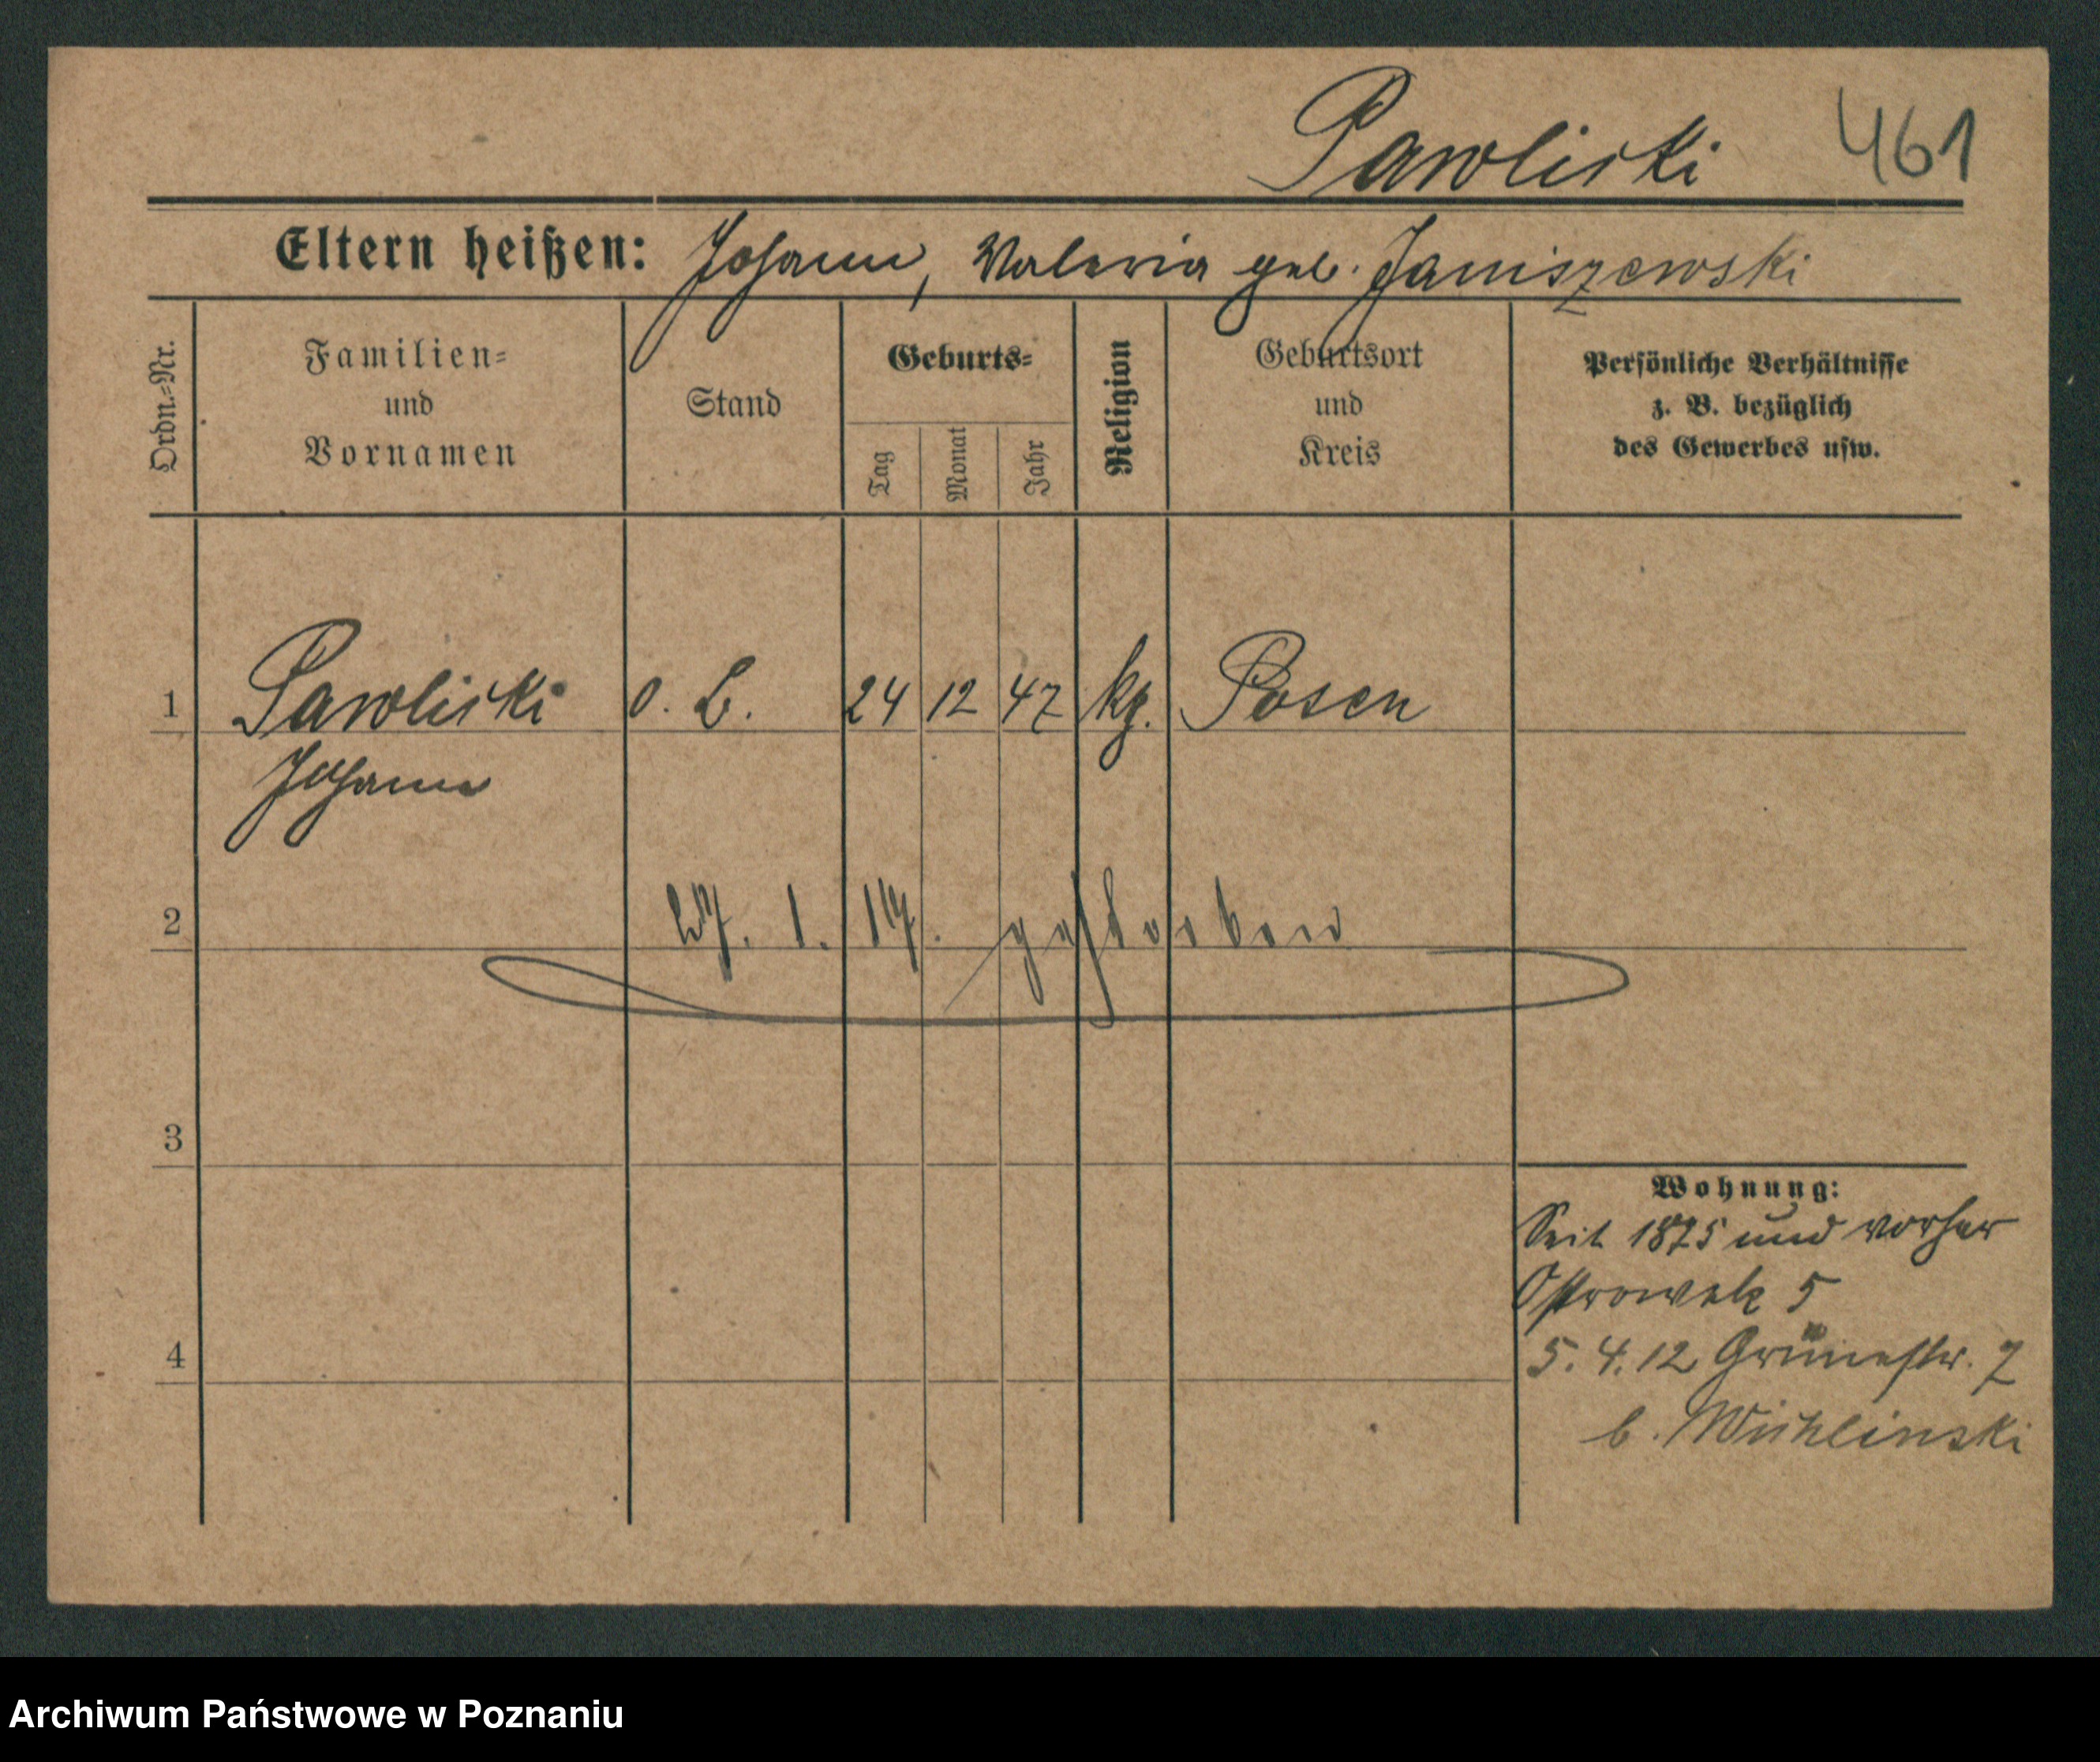 Pawliski 461
Eltern heißen: Johann, Valeria geb. Janiszewski
Ordn.-Nr.
Familien-
und
Vornamen
Stand
Geburts-
Tag
Monat
Jahr
Religion
Geburtsort
und
Kreis
Persönliche Verhältnisse
z. B. bezüglich
des Gewerbes usw.
1 Pawliski o. B. 24 12 47 kg. Posen
Johann
2 27. 1. 17. gestorben
3
4
Wohnung:
Seit 1875 und vorher
5
5. 4. 12 Grünestr. 7
b.
Archiwum Państwowe w Poznaniu